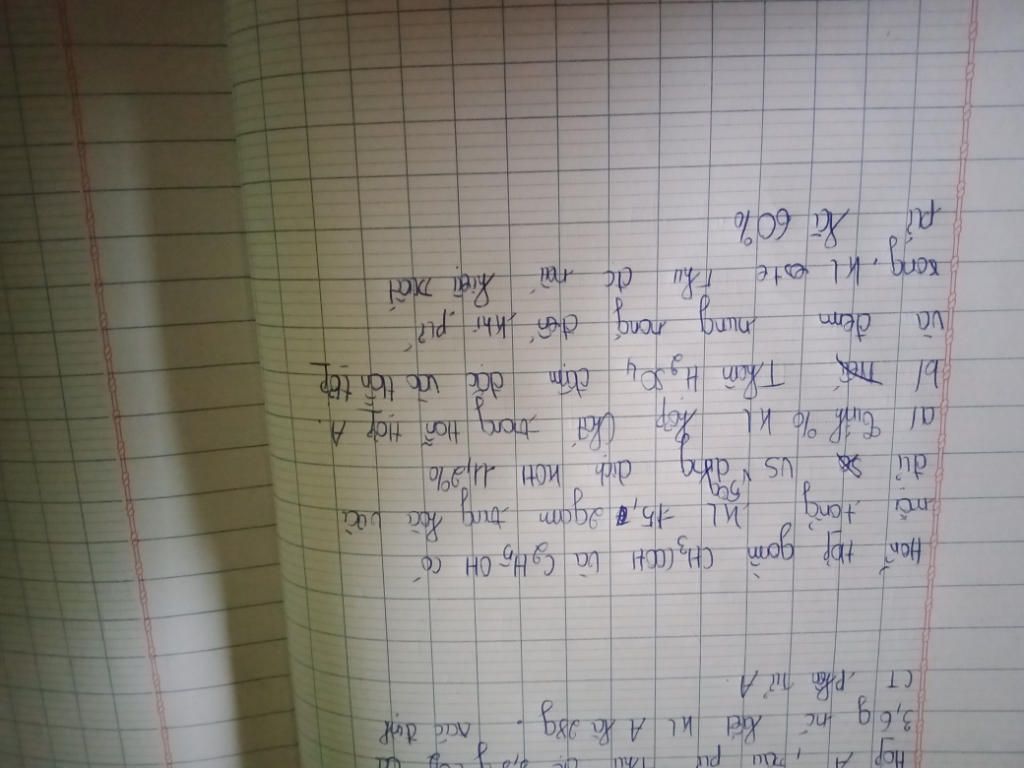 Hợp A, sau pứ thu đc
3,6 g nc biết KL A là 28g. xác định
CT phân tử A.
Hỗn Hợp gồm CH3COOH và C2H5OH có
mà tổng KL 15,2gam trung hòa vừa
đủ vs 50g dung dịch KOH 11,2%
a/ Tính % KL hợp chất trong Hỗn Hợp A.
b/ Thêm H2SO4 đậm đặc vào Hỗn Hợp
và đem nung nóng đến khi pứ
xong. KL este thu đc nếu hiệu suất
pứ là 60%